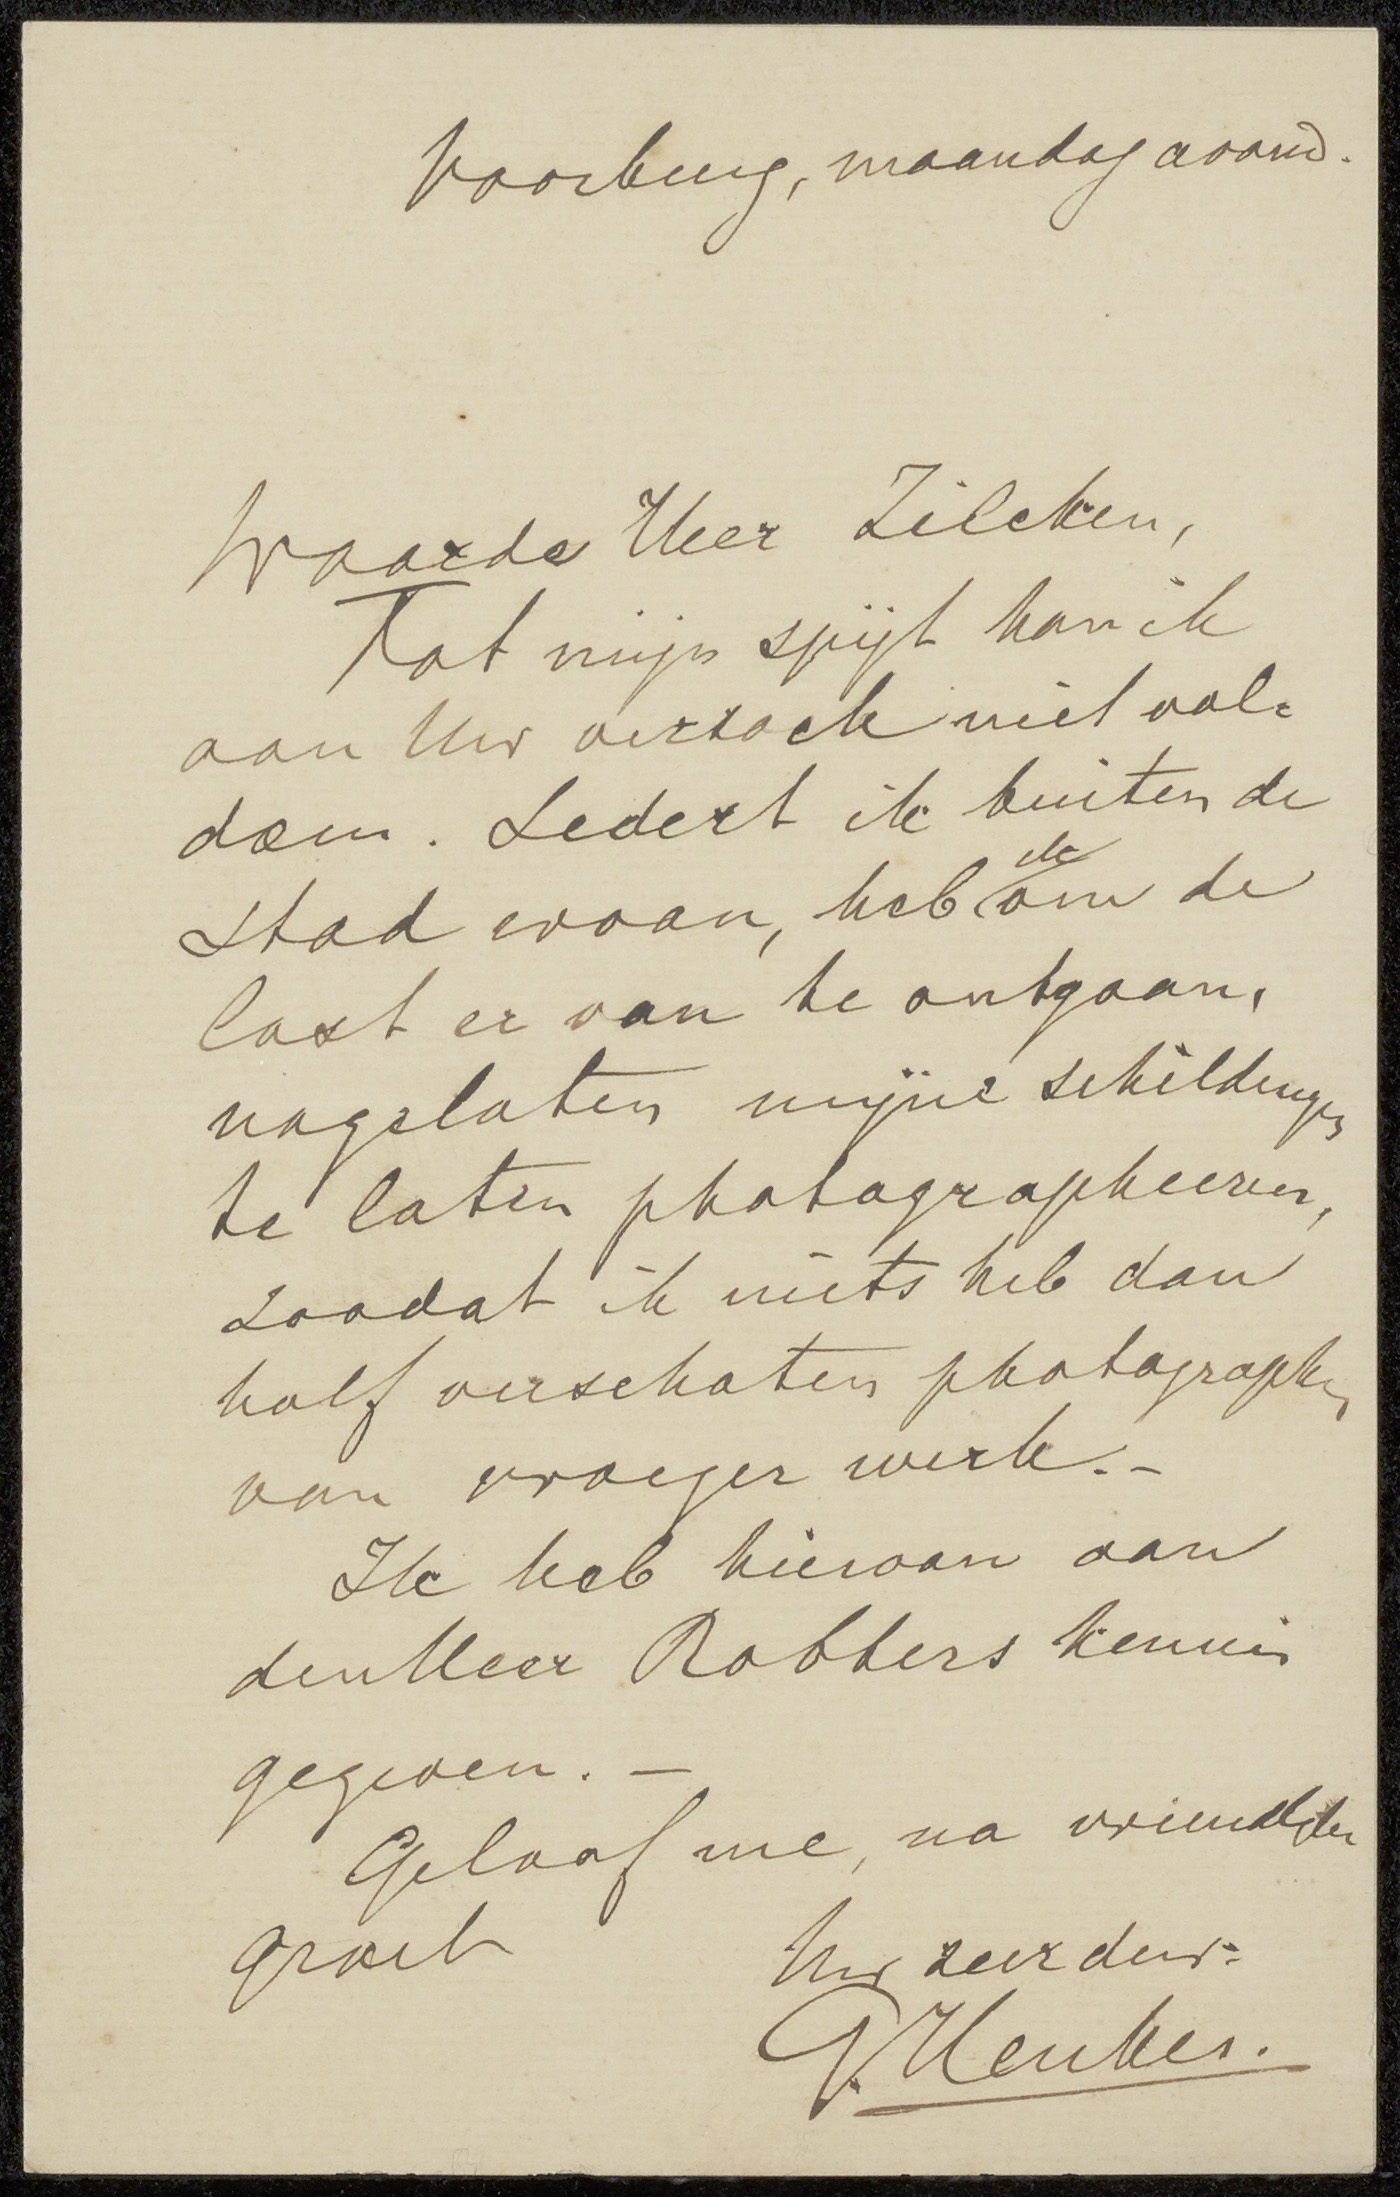 Voorburg, maandag avond.
Waarde Heer Zilcken,
Tot mijn spijt kan ik
aan Uw verzoek niet vol=
doen. Sedert ik buiten de
stad woon, heb ik om de
last er van te ontgaan,
nagelaten mijne schilderijen
te laten photographeeren,
zoodat ik niets heb dan
half verschoten photographen
van vroeger werk. –
Ik heb hiervan aan
den Heer Robbers kennis
gegeven. –
Geloof me, na vriendelijken
groet
Uw zeer dw.=
P. Henkes.